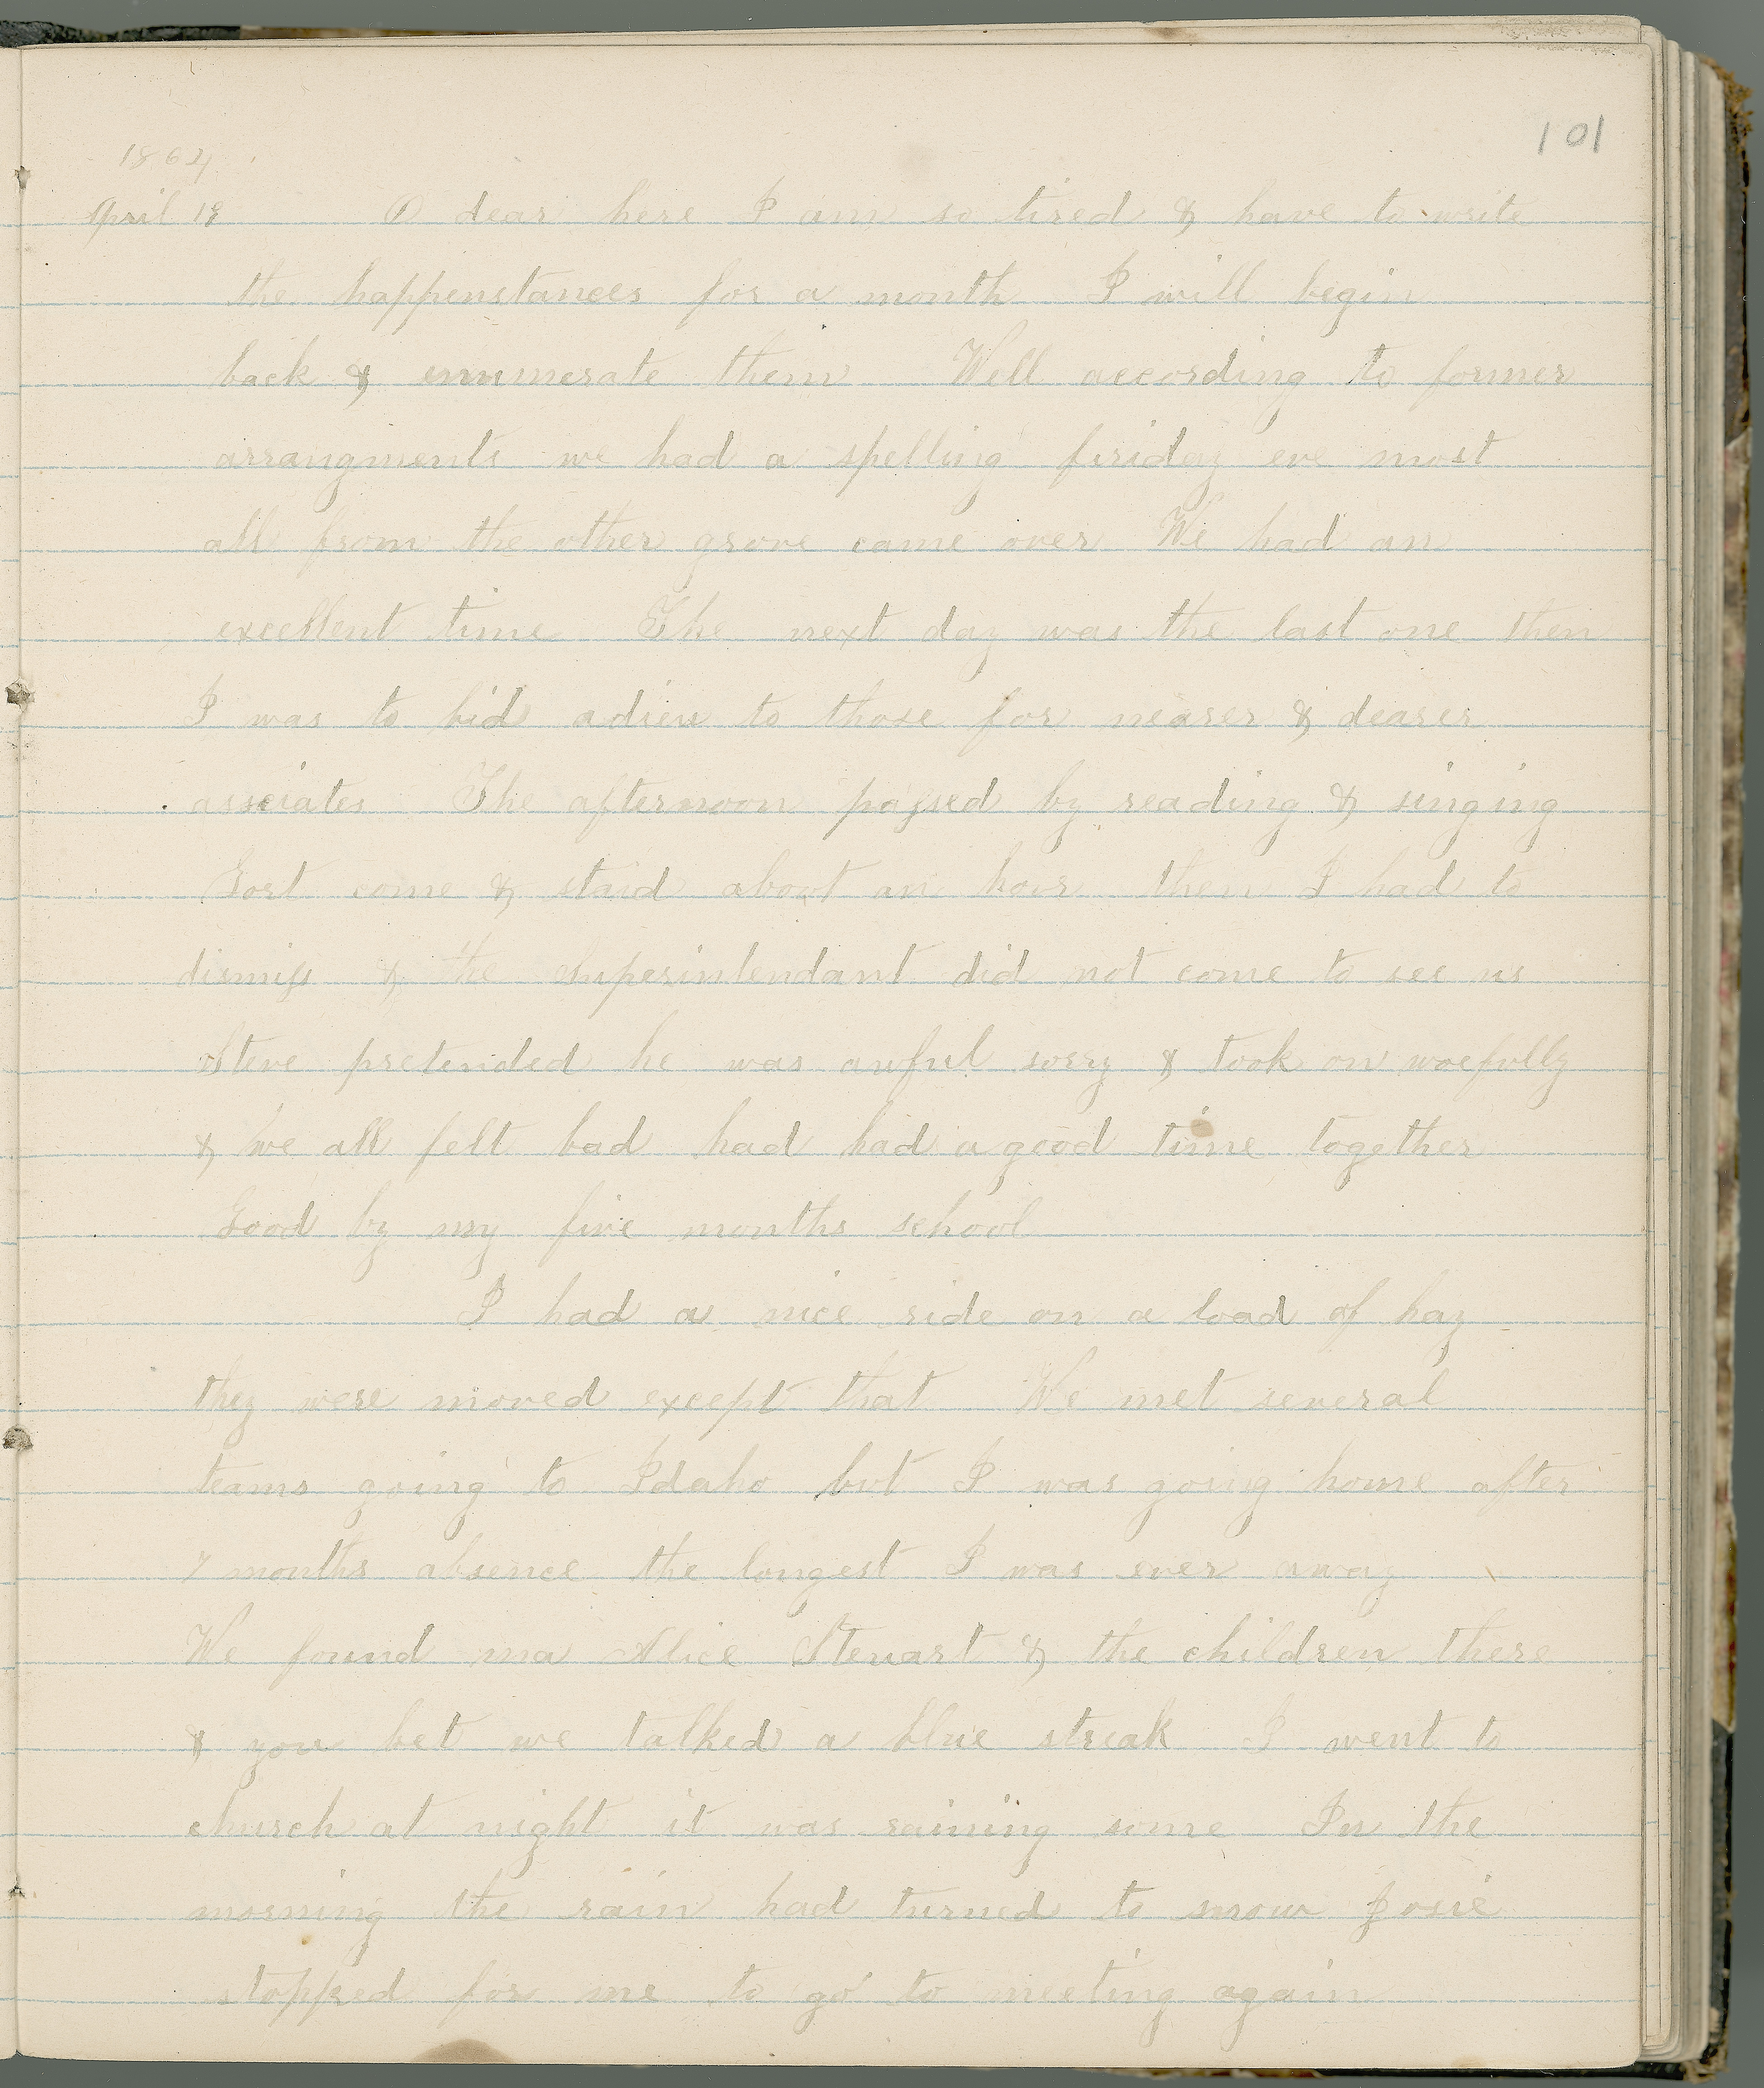 101
1864
April 18 O dear here I am so tired & have to write
the happenstances for a month I will begin
back & enumerate them Well according to former
arrangments we had a spelling friday eve most
all from the other grove came over We had an
excellent time The next day was the last one then
I was to bid adieu to those for nearer & dearer
assciates The afternoon passed by reading & singing
Gost come & staid about an hour then I had to
dismiss & the superintendant did not come to see us
Steve pretended he was awful sorry & took on woefully
& we all felt bad had had a good time together
Good by my five months school
I had a nice ride on a load of hay
they were moved except that We met several
teams going to Idaho but I was going home after
7 months absence the longest I was ever away
We found ma Alice Steuart & the children there
& you bet we talked a blue streak I went to
church at night it was raining some In the
morning the rain had turned to snow Josie
stopped for me to go to meeting again